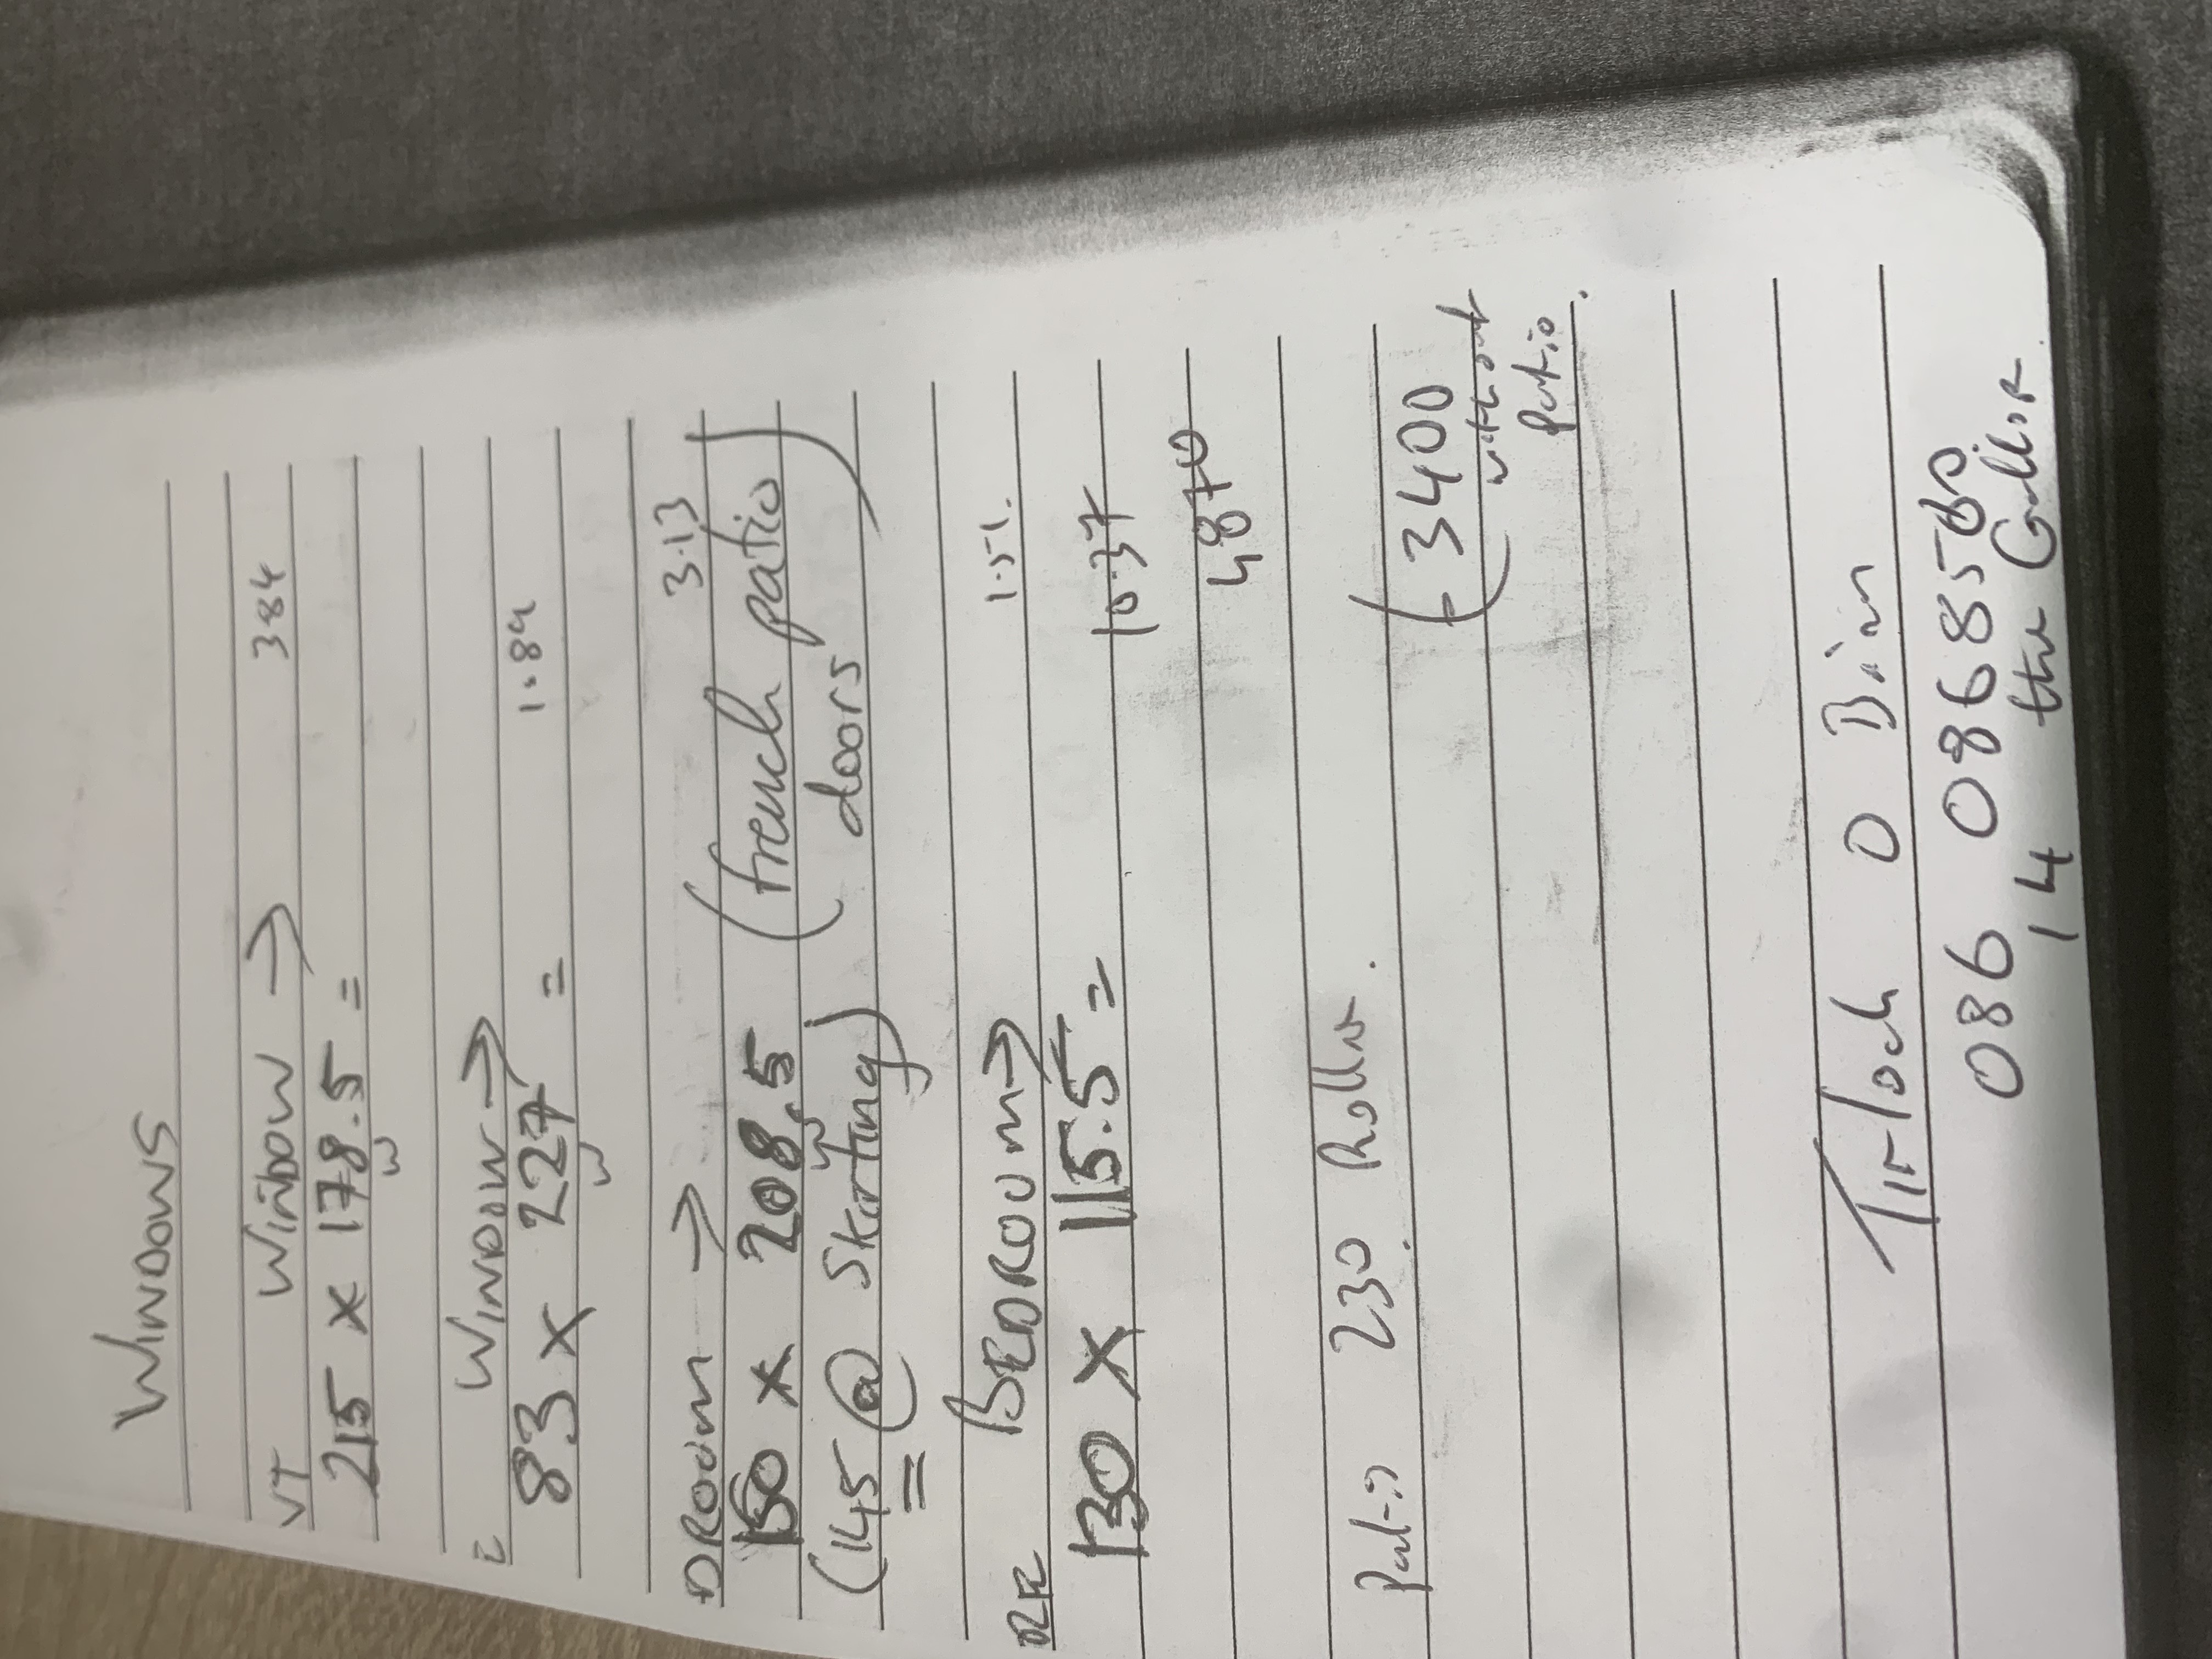 WINDOWS
WINDOW → 384
215 x 178.5 =
w
WINDOW → 1.89
83 x 227 =
w
DROOM → 3.13
150 x 208.5 (french patio
w
(145 @ Skirting) doors)
=
BEDROOM → 1.51.
130 x 115.5 =
10.37
4870
230 Roller.
(- 3400
without
patio.
Turloch O Brien
086 0868580
14 the